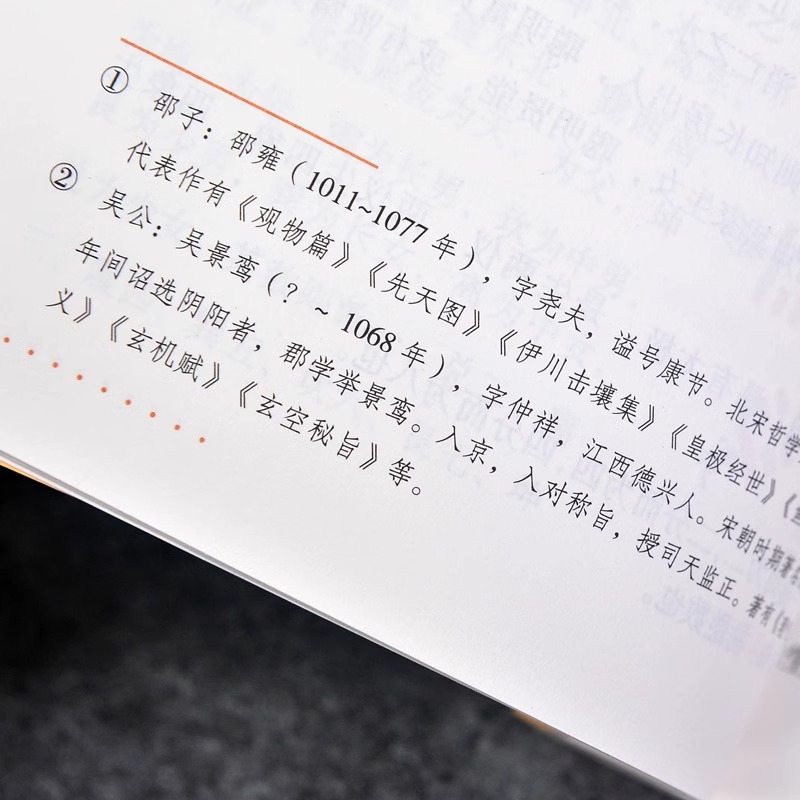 ① 邵子：邵雍（1011~1077 年），字尧夫，谥号康节。北宋哲学
代表作有《观物篇》《先天图》《伊川击壤集》《皇极经世》《
② 吴公：吴景鸾（？~ 1068 年），字仲祥，江西德兴人。宋朝时期著
年间诏选阴阳者，郡学举景鸾。入京，入对称旨，授司天监正。著有《
义》《玄机赋》《玄空秘旨》等。